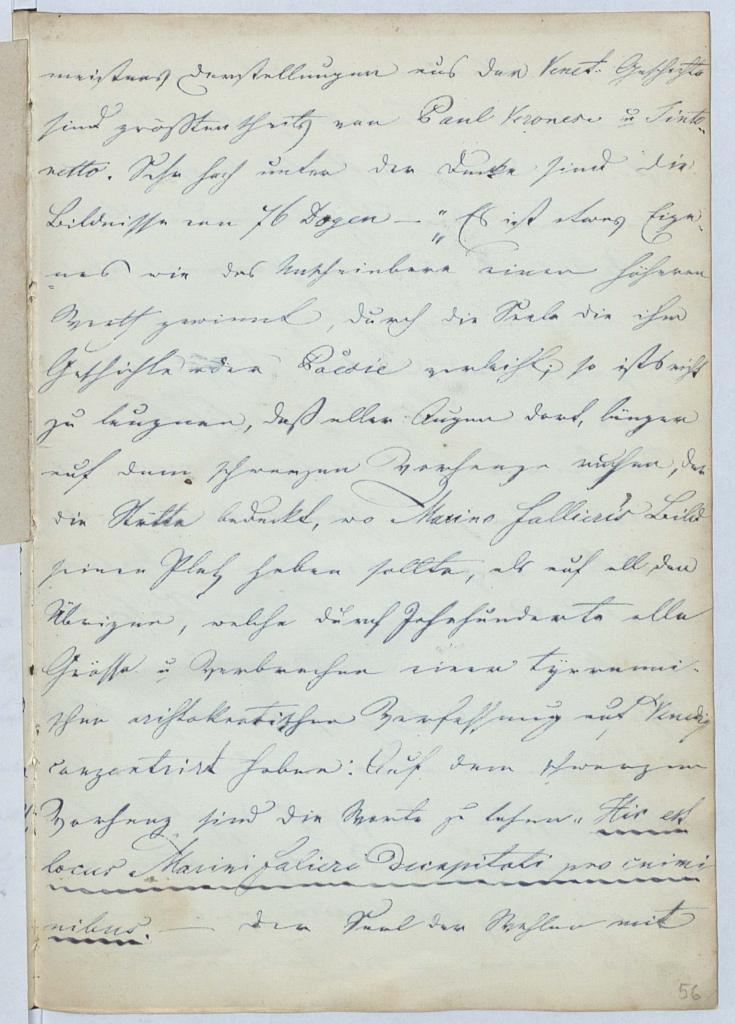 meistens Darstellungen aus der Venet. Geschichte
sind grösstentheils von Paul Veronese u Tinto-
retto. Sehr hoch unter der Decke sind die
Bildnisse von 76 Dogen — „Es ist etwas Eige-
nes wie das Unscheinbare einen höheren
Werth gewinnt, durch die Seele die ihm
Geschichte oder Poësie verleiht; so ists nicht
zu leugnen, daß aller Augen dort, länger
auf dem schwarzen Vorhange ruhen, der
die Stätte bedeckt, wo Marino Fallieris Bild
seinen Platz haben sollte, als auf all den
Übrigen, welche durch Jahrhunderte alle
Grösse u Verbrechen einer tyranni-
schen aristokratischen Verfassung auf Venedig
conzentrirt haben: Auf dem schwarzen
Vorhang sind die Worte zu lesen „Hic est
locus Marini Falieri Decapitati pro crimi
nibus. — Der Saal der Wahlen mit
56